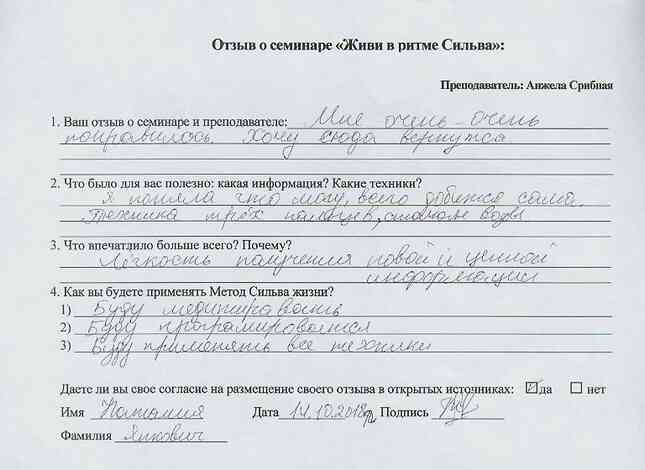 Отзыв о семинаре «Живи в ритме Сильва»:
Преподаватель: Анжела Срибная
1. Ваш отзыв о семинаре и преподавателе: Мне очень-очень
понравилось. Хочу сюда вернутся.
2. Что было для вас полезно: какая информация? Какие техники?
Я поняла что могу всего добится сама.
Техника трёх пальцев, стакан воды
3. Что впечатлило больше всего? Почему?
Лёгкость получения новой и ценной
информации
4. Как вы будете применять Метод Сильва жизни?
1) Буду медитировать
2) Буду програмироватся
3) Буду применять все техники
Даете ли вы свое согласие на размещение своего отзыва в открытых источниках: ☑ да ☐ нет
Имя Наталия Дата 14.10.2018р Подпись
Фамилия Янкович